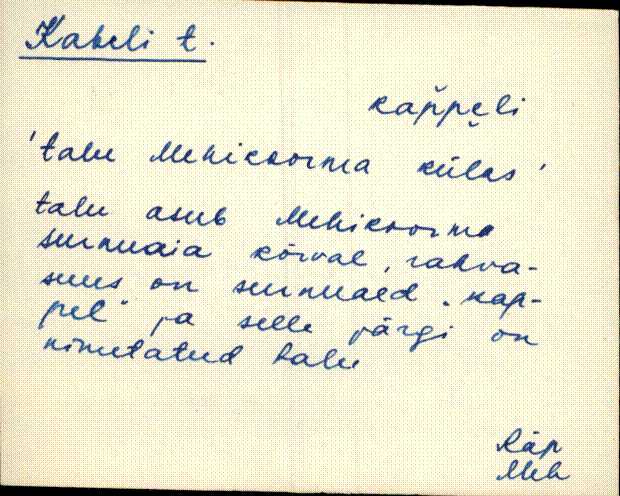 Kabeli t.
kap̌pęli
'talu Mehikoorma külas'
talu asub Mehikoorma
surnuaia kõrval, rahva-
suus on surnuaed „kap-
pel" ja selle järgi on
nimetatud talu
Räp
Meh